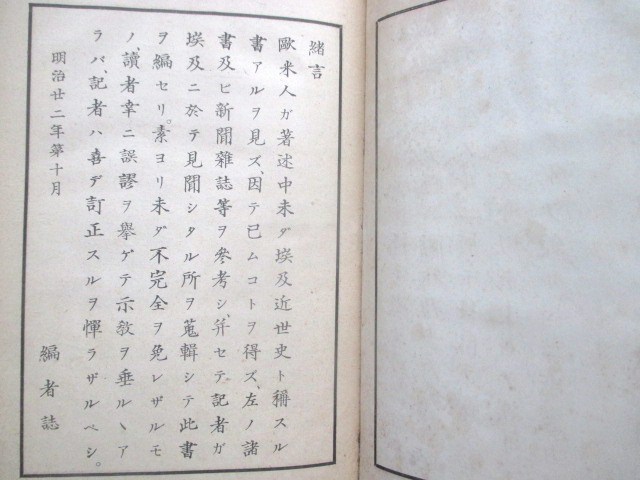 緒言
歐米人ガ著述中未ダ埃及近世史ト稱スル
書アルヲ見ズ、因テ已ムコトヲ得ズ、左ノ諸
書及ヒ新聞雜誌等ヲ參考シ、并セテ記者ガ
埃及ニ於テ見聞シタル所ヲ蒐輯シテ此書
ヲ編セリ。素ヨリ未ダ不完全ヲ免レザルモ
ノ、讀者幸ニ誤謬ヲ擧ゲテ示敎ヲ垂ルヽア
ラバ、記者ハ喜デ訂正スルヲ憚ラザルベシ。
明治廿二年第十月
編者誌